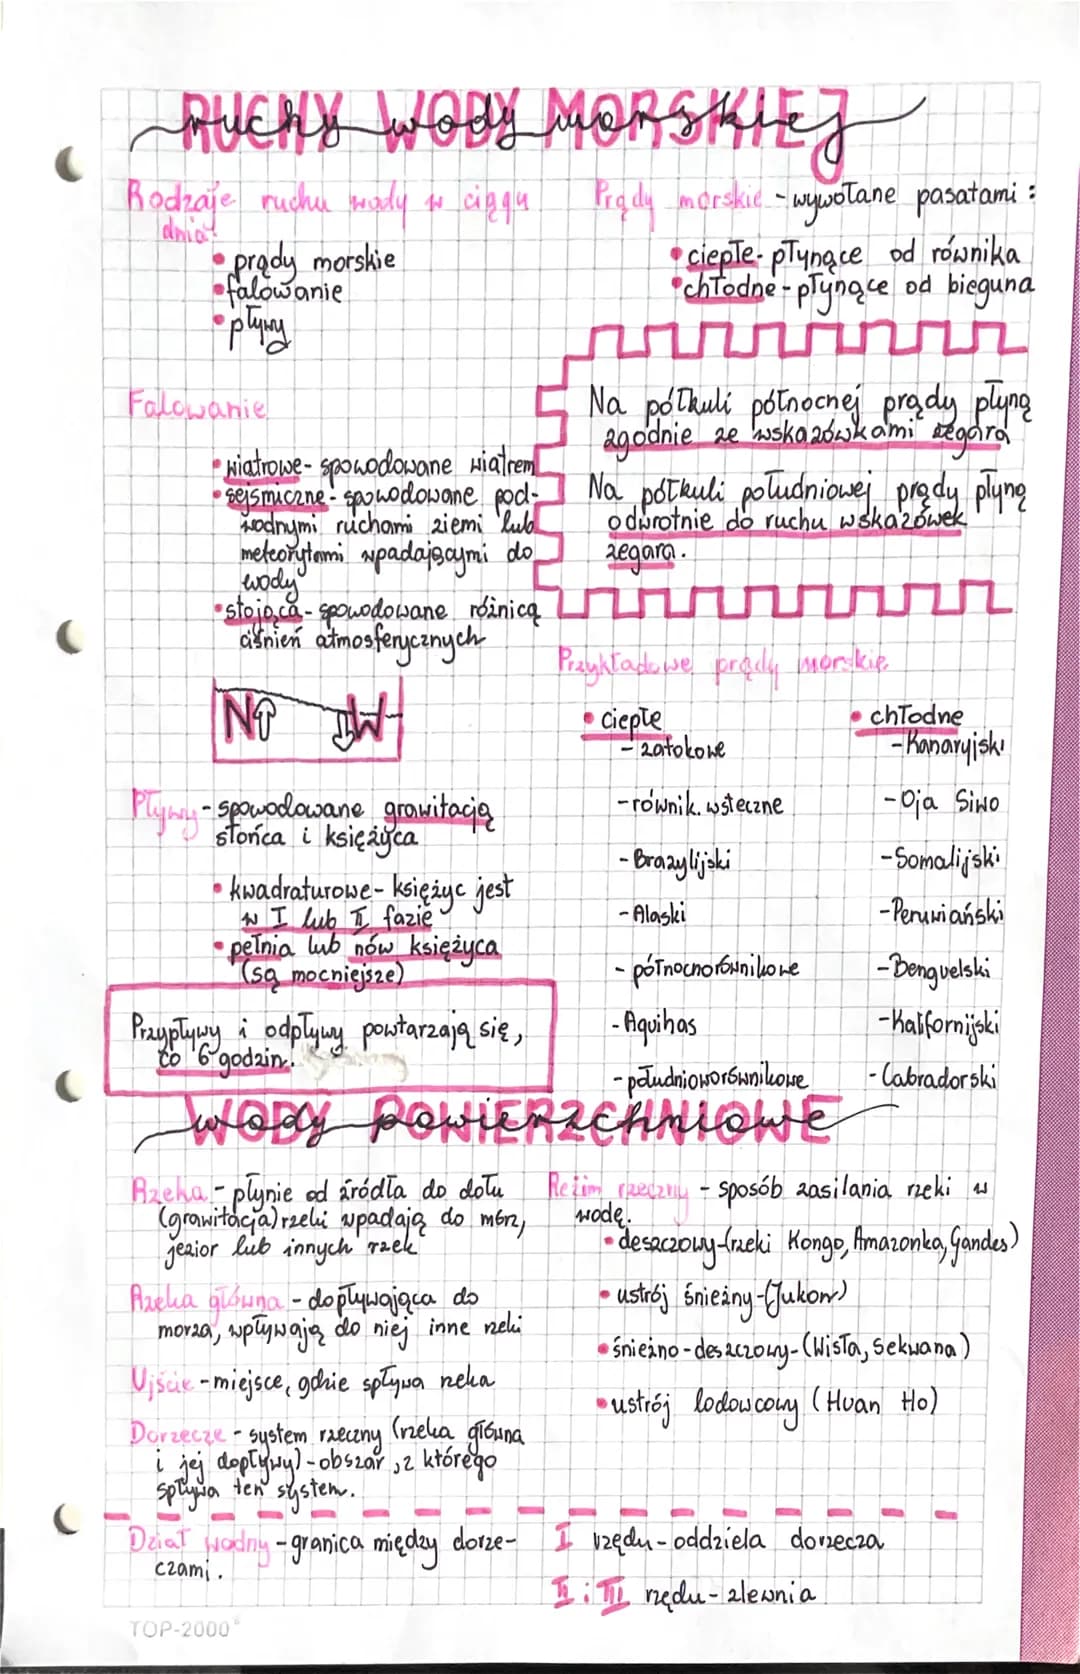 RUCHY WODY MORSKIEJ
Rodzaje ruchu wody w ciągu
dnia:
• prądy morskie
• falowanie
• pływy
Prądy morskie - wywołane pasatami:
• ciepłe - płynące od równika
• chłodne - płynące od bieguna
Na półkuli północnej prądy płyną
zgodnie ze wskazówkami zegara
Na półkuli południowej prądy płyną
odwrotnie do ruchu wskazówek
zegara.
Falowanie
• wiatrowe - spowodowane wiatrem
• sejsmiczne - spowodowane pod-
wodnymi ruchami ziemi lub
meteorytami wpadającymi do
wody
• stojąca - spowodowane różnicą
ciśnień atmosferycznych
N W
Pływy - spowodowane grawitacją
słońca i księżyca
• kwadraturowe - księżyc jest
w I lub II fazie
• pełnia lub nów księżyca
(są mocniejsze)
Przypływy i odpływy powtarzają się,
co 6 godzin.
Przykładowe prądy morskie
• ciepłe
- zatokowe
- równik. wsteczne
- Brazylijski
- Alaski
- północnorównikowe
- Aquihas
- południoworównikowe
• chłodne
- Kanaryjski
- Oja Siwo
- Somalijski
- Peruwiański
- Benguelski
- Kalifornijski
- Labradorski
WODY POWIERZCHNIOWE
Rzeka - płynie od źródła do dołu
(grawitacja) rzeki wpadają do mórz,
jezior lub innych rzek
Rzeka główna - dopływająca do
morza, wpływają do niej inne rzeki
Ujście - miejsce, gdzie spływa rzeka
Dorzecze - system rzeczny (rzeka główna
i jej dopływy) - obszar, z którego
spływa ten system.
Reżim rzeczny - sposób zasilania rzeki w
wodę.
• deszczowy - (rzeki Kongo, Amazonka, Gandes)
• ustrój śnieżny - (Jukon)
• śnieżno - deszczowy - (Wisła, Sekwana)
• ustrój lodowcowy (Huan Ho)
Dział wodny - granica między dorze-
czami.
I rzędu - oddziela dorzecza
II i III rzędu - zlewnia
TOP-2000